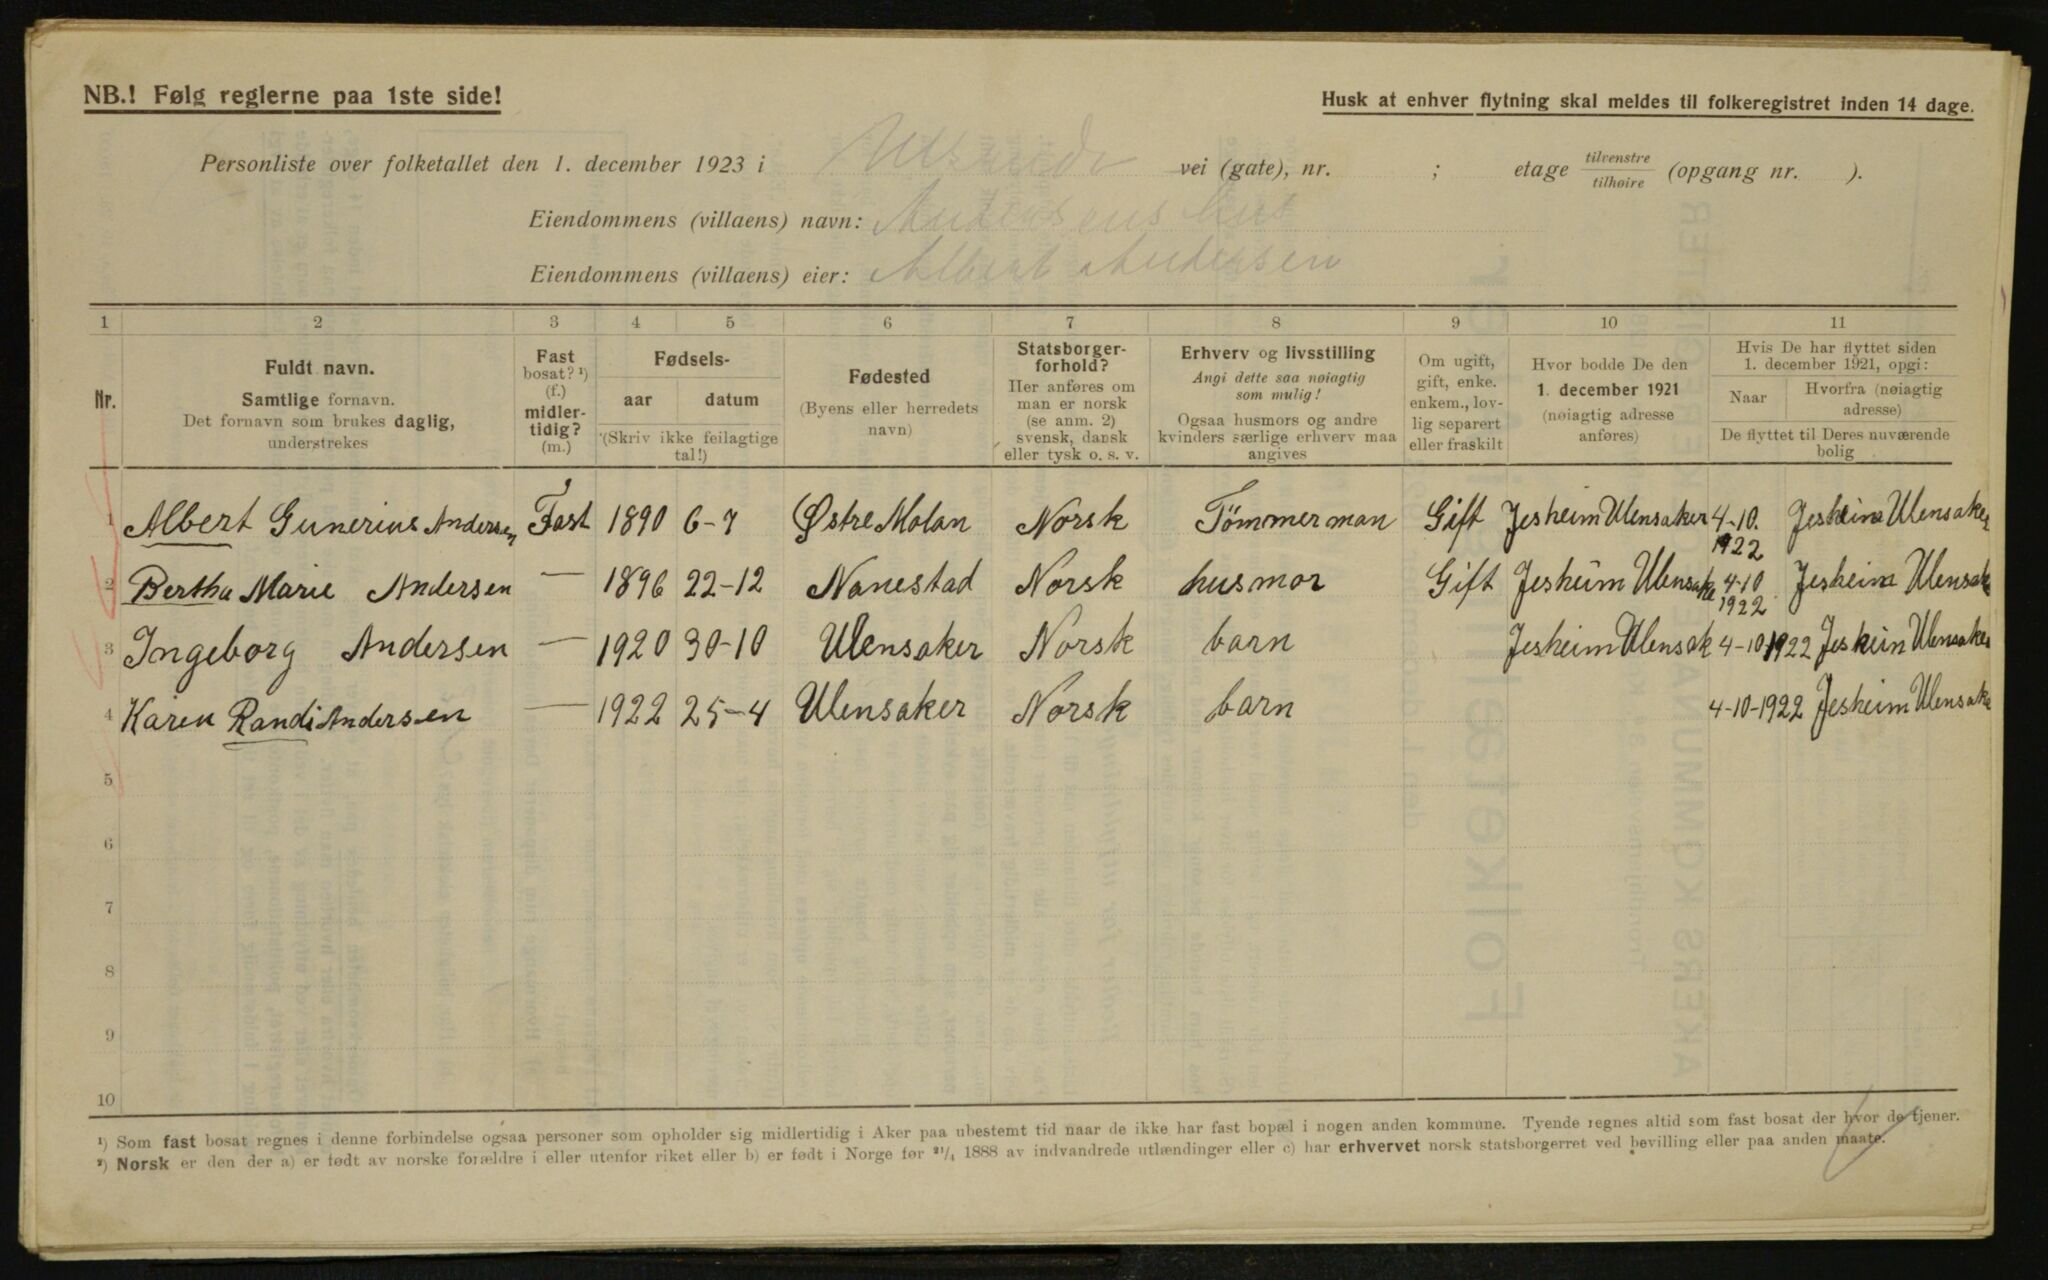 NB.! Følg reglerne paa 1ste side!
Husk at enhver flytning skal meldes til folkeregistret inden 14 dage.
Personliste over folketallet den 1. december 1923 i vei (gate), nr. ; etage tilvenstre/tilhøire (opgang nr. ).
Eiendommens (villaens) navn: Andersens hus
Eiendommens (villaens) eier: Albert Andersen
1 2 3 4 5 6 7 8 9 10 11
Nr.
Fuldt navn.
Samtlige fornavn.
Det fornavn som brukes daglig,
understrekes
Fast
bosat? ¹)
(f.)
midler-
tidig?
(m.)
Fødsels-
aar datum
(Skriv ikke feilagtige
tal!)
Fødested
(Byens eller herredets
navn)
Statsborger-
forhold?
Her anføres om
man er norsk
(se anm. 2)
svensk, dansk
eller tysk o. s. v.
Erhverv og livsstilling
Angi dette saa nøiagtig
som mulig!
Ogsaa husmors og andre
kvinders særlige erhverv maa
angives
Om ugift,
gift, enke.
enkem., lov-
lig separert
eller fraskilt
Hvor bodde De den
1. december 1921
(nøiagtig adresse
anføres)
Hvis De har flyttet siden
1. december 1921, opgi:
Naar
Hvorfra (nøiagtig
adresse)
De flyttet til Deres nuværende
bolig
1 Albert Gunerius Andersen Fast 1890 6-7 Østre Molan Norsk Tömmerman Gift Jesheim Ulensaker 4-10. 1922 Jesheim Ulensaker
2 Bertha Marie Andersen — 1896 22-12 Nanestad Norsk husmor Gift Jesheim Ulensake 4-10 1922 Jesheim Ulensak
3 Ingeborg Andersen — 1920 30-10 Ulensaker Norsk barn Jesheim Ulensak 4-10-1922 Jesheim Ulensaker
4 Karen Randi Andersen — 1922 25-4 Ulensaker Norsk barn 4-10-1922 Jesheim Ulensake
5
6
7
8
9
10
¹) Som fast bosat regnes i denne forbindelse ogsaa personer som opholder sig midlertidig i Aker paa ubestemt tid naar de ikke har fast bopæl i nogen anden kommune. Tyende regnes altid som fast bosat der hvor de tjener.
²) Norsk er den der a) er født av norske forældre i eller utenfor riket eller b) er født i Norge før ²¹/₄ 1888 av indvandrede utlændinger eller c) har erhvervet norsk statsborgerret ved bevilling eller paa anden maate.